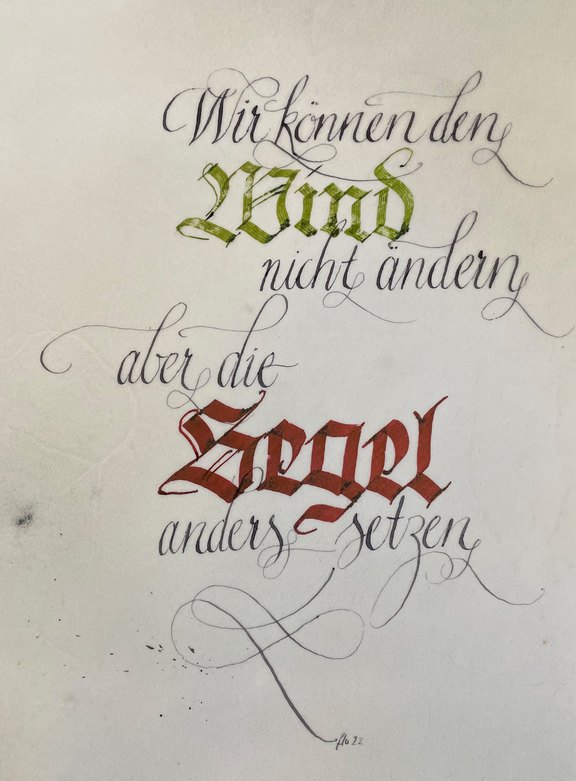 Wir können den
Wind
nicht ändern
aber die
Segel
anders setzen
flo 22